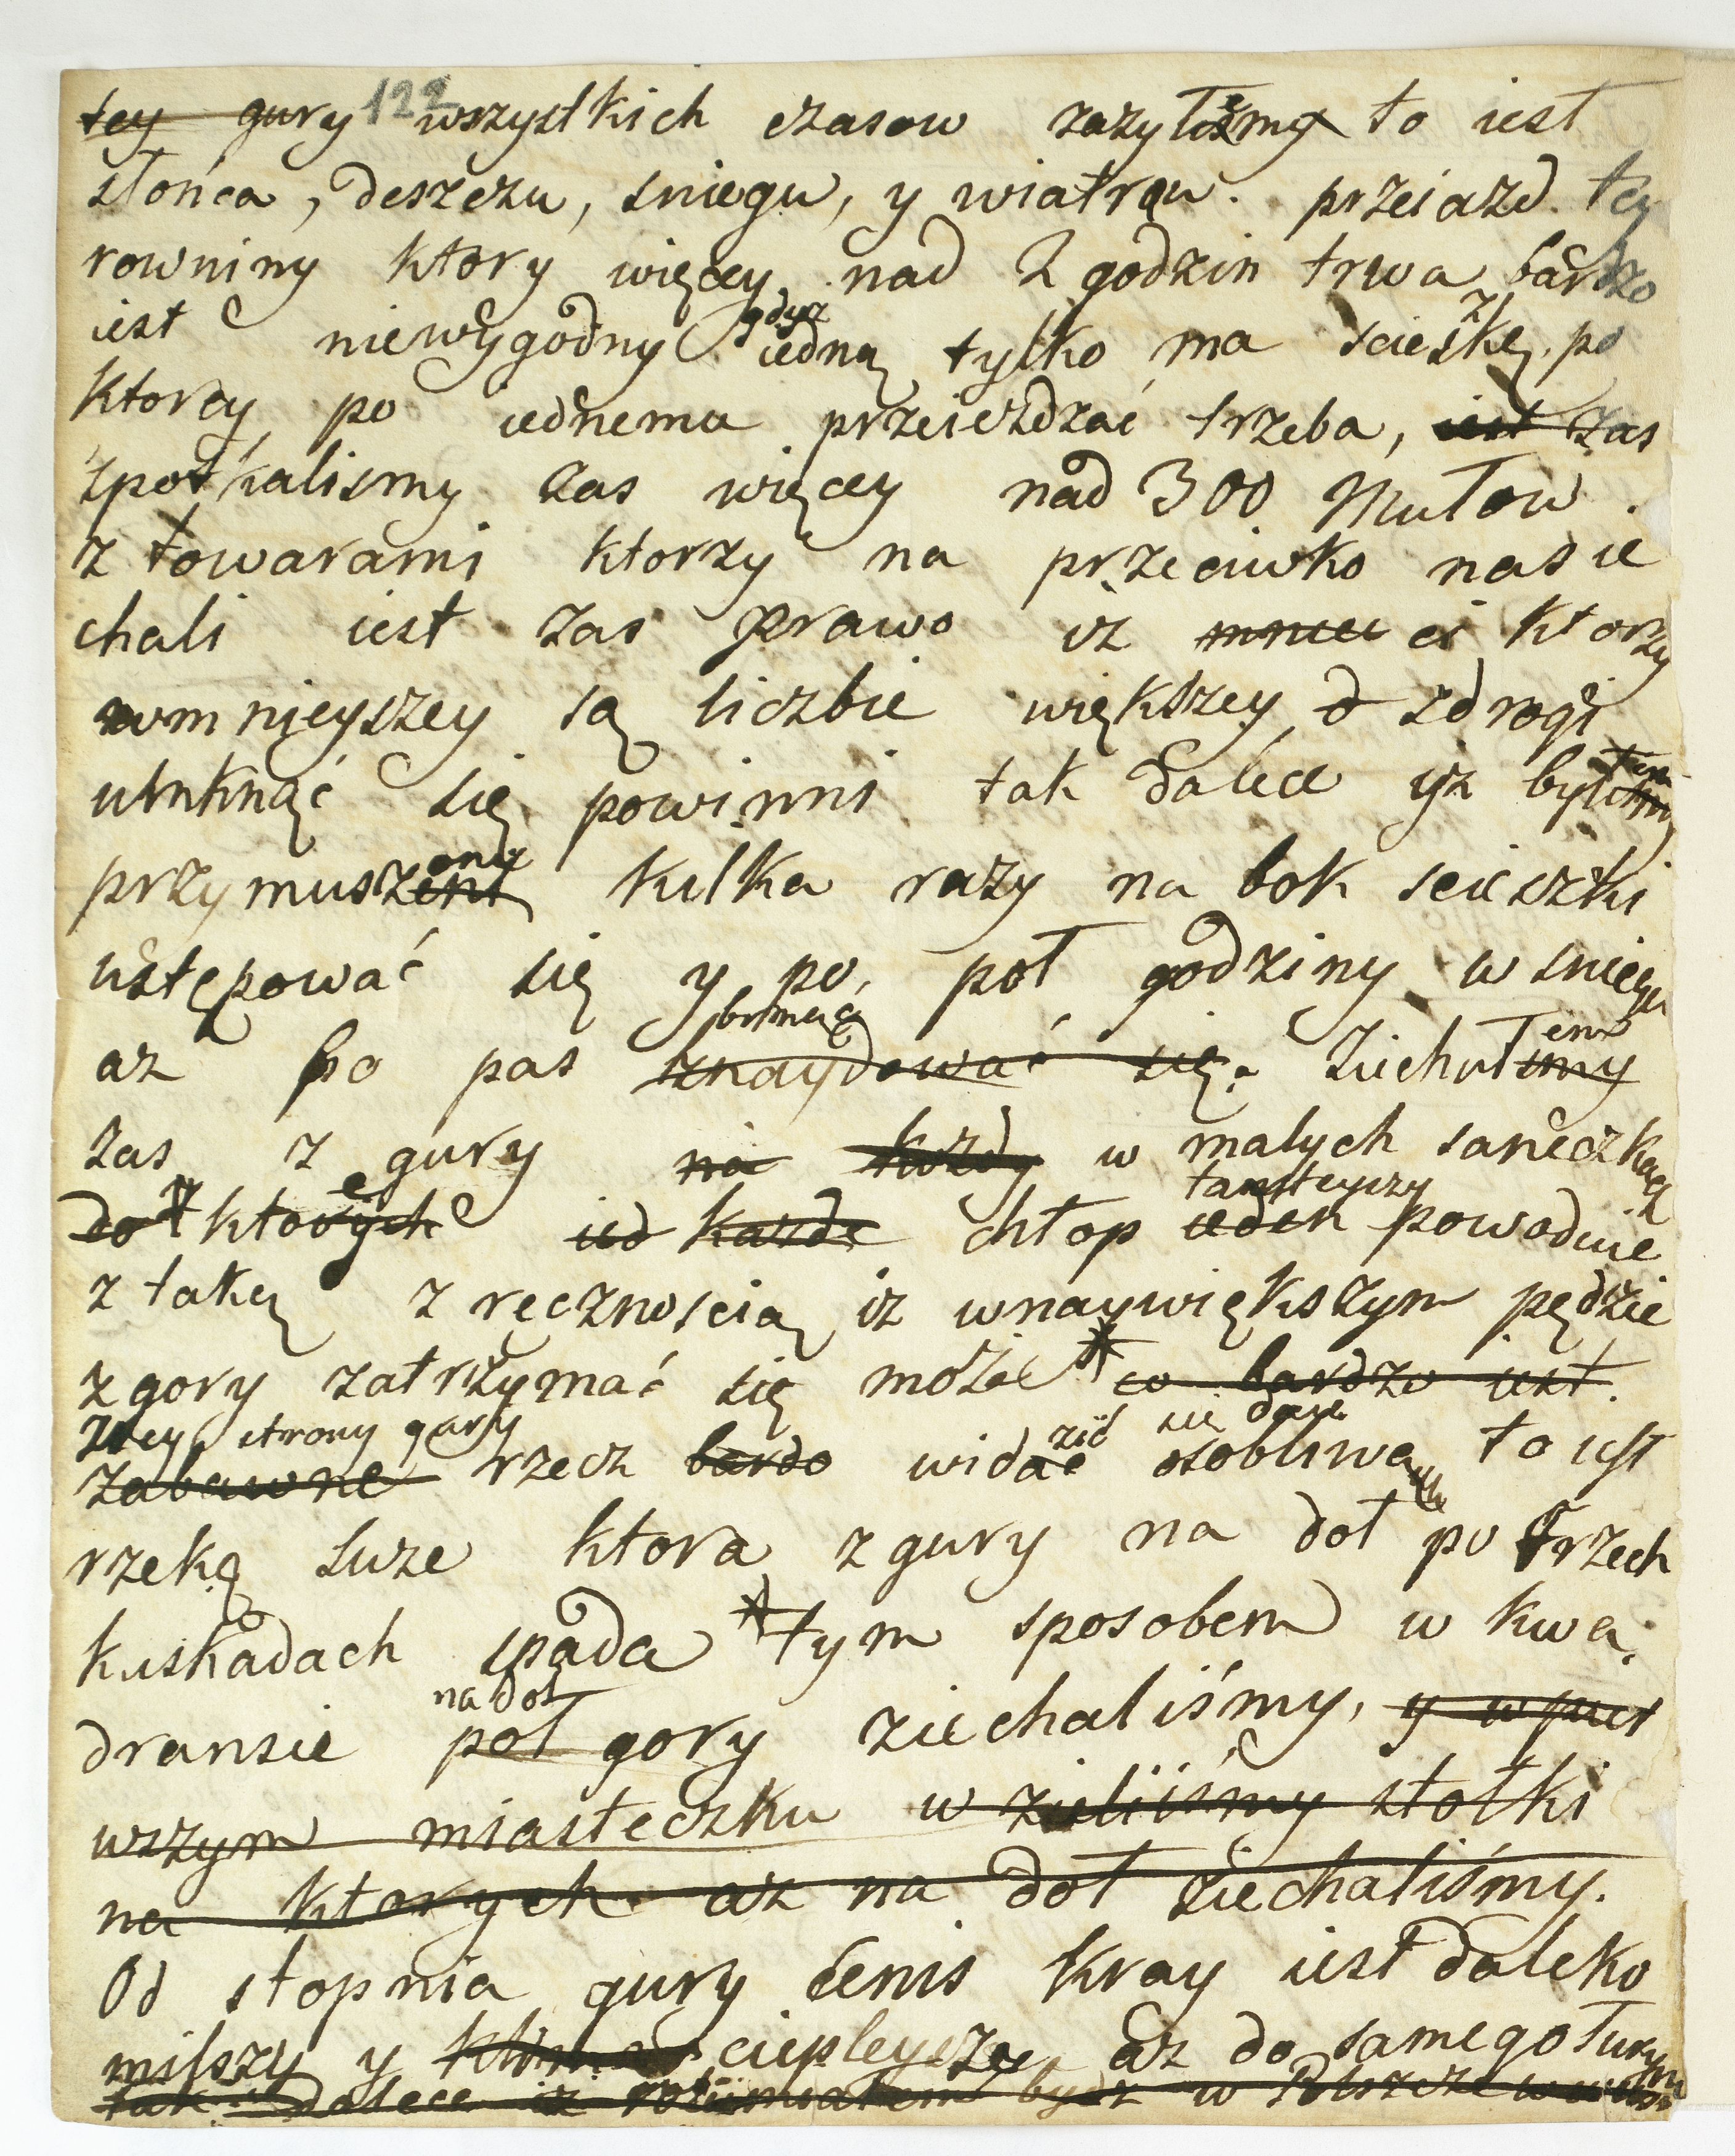 tey gury 122 wszystkich czasow zazyliżmy to iest
słońca, deszczu, sniegu, y wiatrow. przeiazd tey
rowniny ktory więcey nad 2 godzin trwa bardzo
iest niewygodny gdyz iedną tylko ma scieszkę po
ktorey po iednemu przeieżdzać trzeba, iest zas
spotkalismy zas więcey nad 300 Mułow
z towarami ktorzy na przeciwko nas ie
chali iest zas prawo iż mniei ci ktorzy
wmnieyszey są liczbie większey z drogi
umknąć się powinni tak dalece yz bylismy
przymuszeni ony kilka razy na bok scieszki
ustępować się y po poł godziny w sniegu
az po pas znaydować się. Ziechałem
zas z gury na każdy w malych saneczkach
do ktorych ied każde chłop tamteyszy ieden powoduie
z taką zręcznoscią iz wnaywiększym pędzie
z gory zatrzymać się może co bardzo iest
Ztey strony gury
zabawne rzecz bardo widzić się daie osobliwa to iest
rzekę Suze ktora z gury na doł po trzech
kaskadach spada tym sposobem w kwa-
dransie na doł poł gory ziechaliśmy, y w pier
wszym miasteczku wzieliiśmy stołki
na ktorych az na doł ziechaliśmy.
Od stopnia gury Cenis kray iest daleko
milszy y klima ciepleysze az do samego Turynu
tak dalece iz rozumiałem bydz w Polszcze